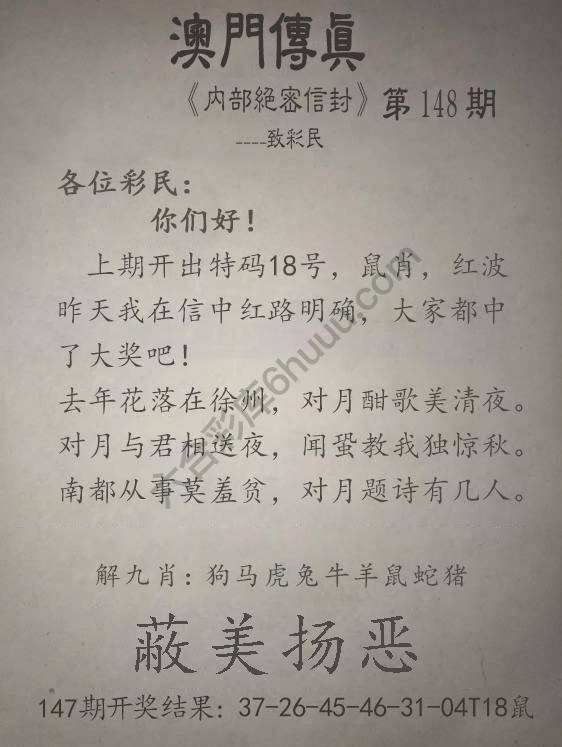 澳門傳眞
《内部絕密信封》第148期
----致彩民
各位彩民：
你们好！
上期开出特码18号，鼠肖，红波
昨天我在信中红路明确，大家都中
了大奖吧！
去年花落在徐州，对月酣歌美清夜。
对月与君相送夜，闻蛩教我独惊秋。
南都从事莫羞贫，对月题诗有几人。
解九肖：狗马虎兔牛羊鼠蛇猪
蔽美扬恶
147期开奖结果：37-26-45-46-31-04T18鼠
六合彩库6huuu.com